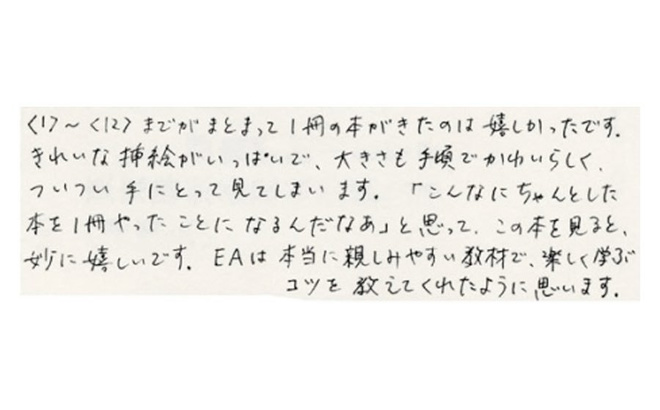 〈1〉～〈12〉までがまとまって1冊の本ができたのは嬉しかったです。
きれいな挿絵がいっぱいで、大きさも手頃でかわいらしく、
ついつい手にとって見てしまいます。「こんなにちゃんとした
本を1冊やったことになるんだなあ」と思って、この本を見ると、
妙に嬉しいです。EAは本当に親しみやすい教材で、楽しく学ぶ
コツを教えてくれたように思います。